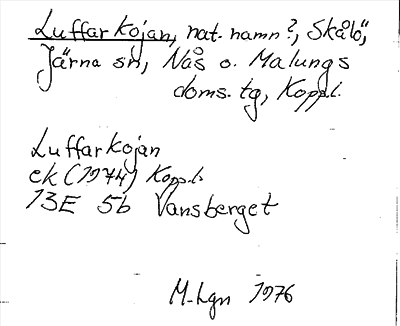 Luffarkojan, nat. namn?, Skålö,
Järna sn, Nås o. Malungs
doms. tg, Kopp.l.
Luffarkojan
ek (1974) Kopp.l.
13E 5b Vansberget
M-Lgn 1976